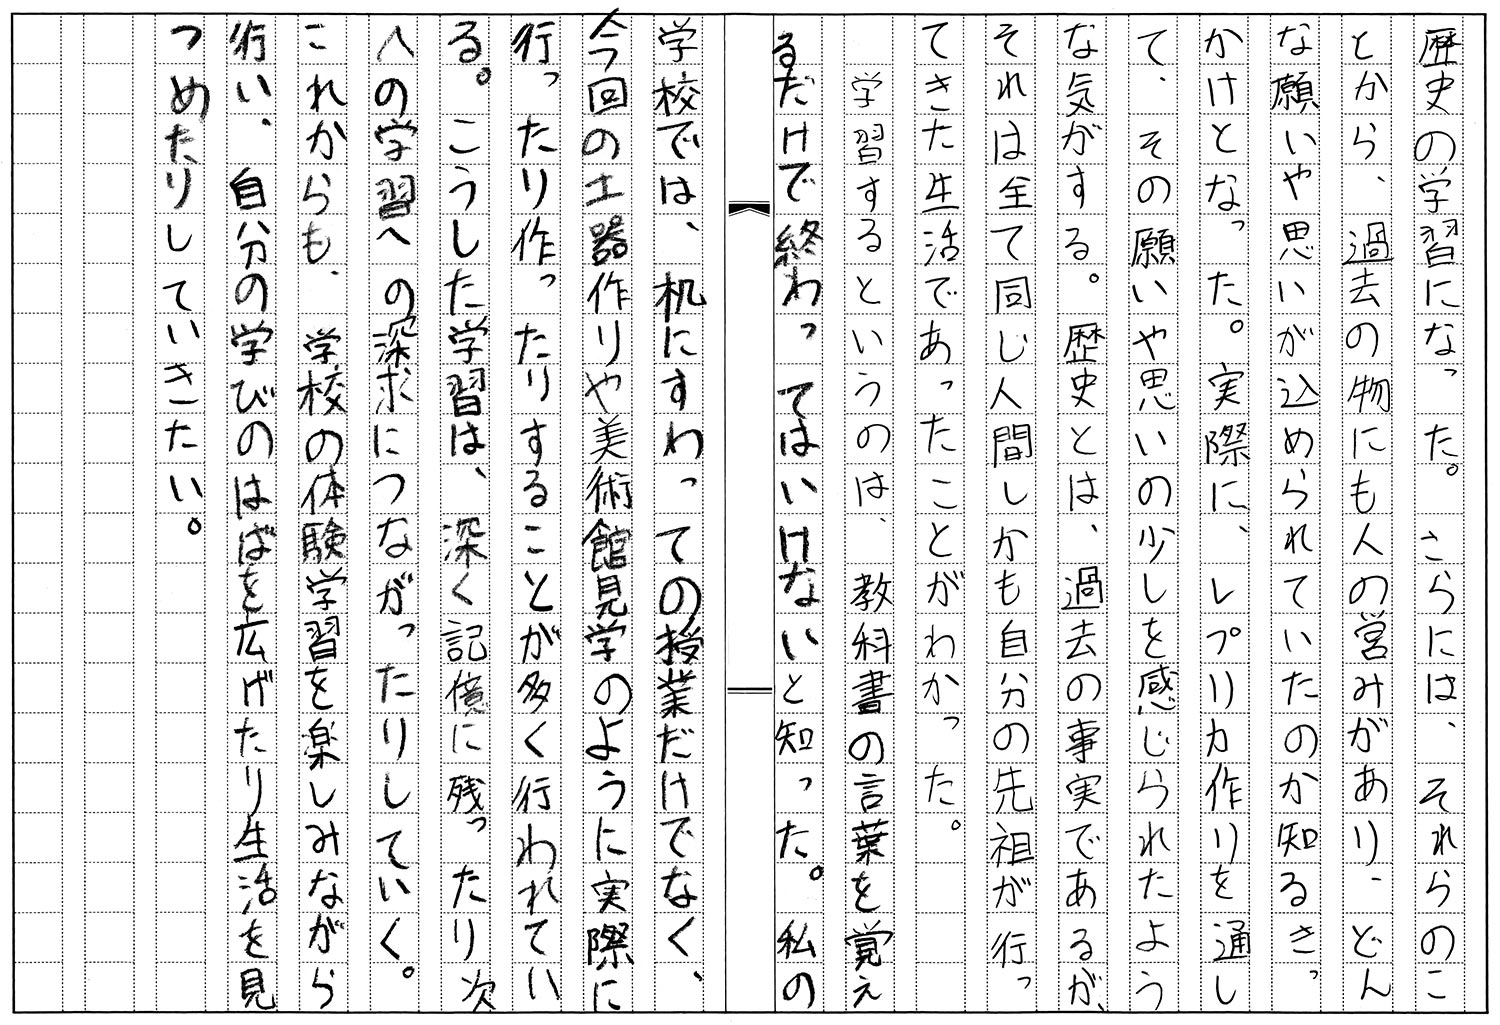 歴史の学習になった。さらには、それらのこ
とから、過去の物にも人の営みがあり、どん
な願いや思いが込められていたのか知るきっ
かけとなった。実際に、レプリカ作りを通し
て、その願いや思いの少しを感じられたよう
な気がする。歴史とは、過去の事実であるが、
それは全て同じ人間しかも自分の先祖が行っ
てきた生活であったことがわかった。
学習するというのは、教科書の言葉を覚え
るだけで終わってはいけないと知った。私の
学校では、机にすわっての授業だけでなく、
今回の土器作りや美術館見学のように実際に
行ったり作ったりすることが多く行われてい
る。こうした学習は、深く記憶に残ったり次
への学習への深求につながったりしていく。
これからも、学校の体験学習を楽しみながら
行い、自分の学びのはばを広げたり生活を見
つめたりしていきたい。